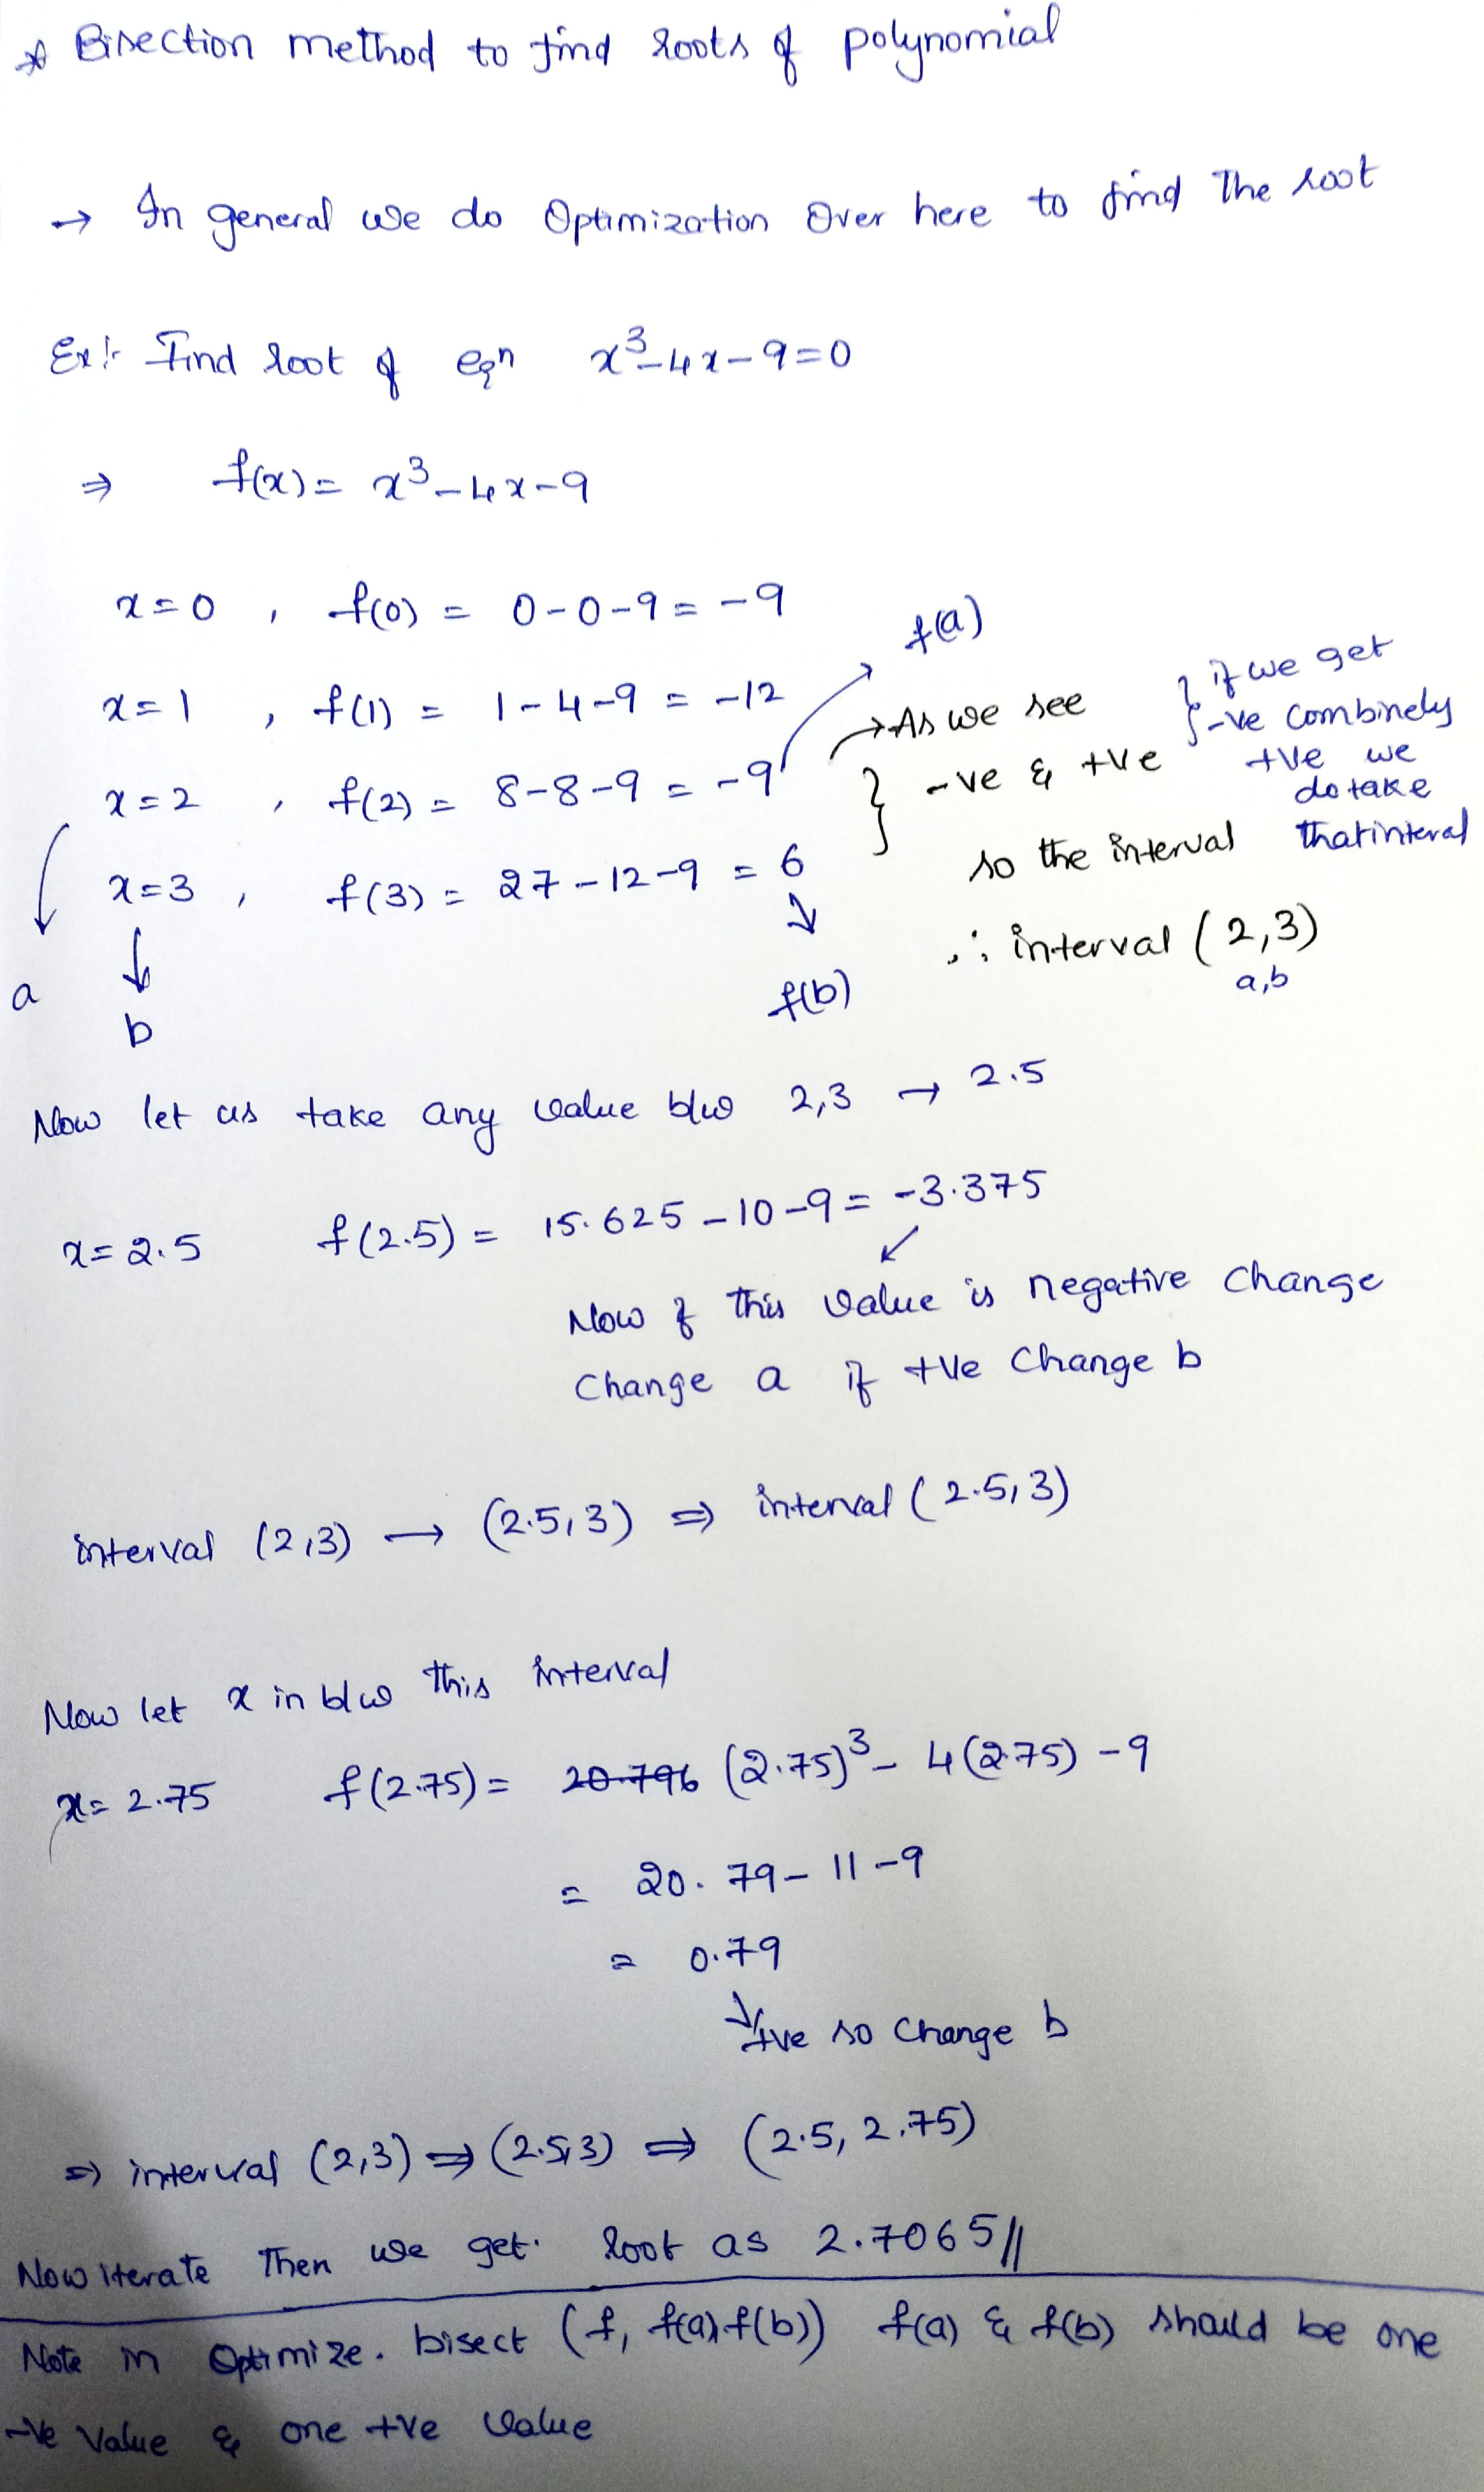 * Bisection method to find roots of polynomial
→ In general we do Optimization Over here to find The root
Ex:- Find root of eqn x³-4x-9=0
⇒ f(x) = x³-4x-9
x=0 , f(0) = 0-0-9 = -9
x=1 , f(1) = 1-4-9 = -12
x=2 , f(2) = 8-8-9 = -9
x=3 , f(3) = 27-12-9 = 6
a
b
f(a)
f(b)
→ As we see
} -ve & +ve
so the interval
∴ interval (2,3)
a,b
} if we get
-ve combinely
+ve we
do take
that interal
Now let us take any value b/w 2,3 → 2.5
x=2.5 f(2.5) = 15.625-10-9 = -3.375
Now if this value is negative change
change a if +ve change b
interval (2,3) → (2.5,3) ⇒ interval (2.5,3)
Now let x in b/w this interval
x= 2.75 f(2.75) = 20.796 (2.75)³- 4(2.75) -9
= 20.79-11-9
= 0.79
+ve so change b
⇒ interval (2,3) ⇒ (2.5,3) ⇒ (2.5, 2.75)
Now iterate Then we get. root as 2.7065//
Note in Optimize. bisect (f, f(a),f(b)) f(a) & f(b) should be one
-ve value & one +ve value